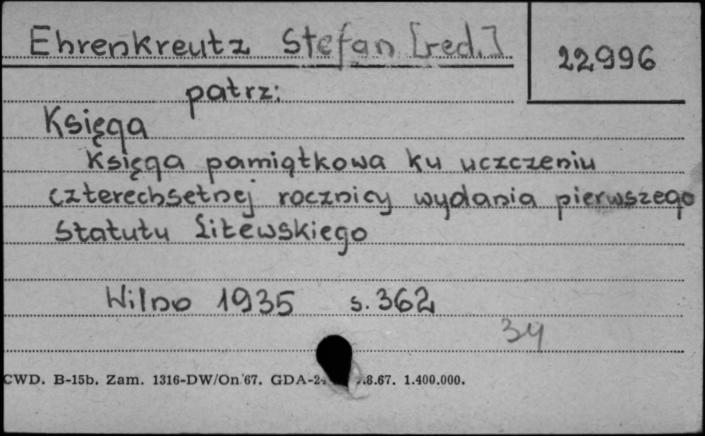 Ehrenkreutz Stefan [red.]
22996
patrz:
Księga
Księga pamiątkowa ku uczczeniu
czterechsetnej rocznicy wydania pierwszego
Statutu Litewskiego
Wilno 1935 s. 362
34
CWD. B-15b. Zam. 1316-DW/On/67. GDA-2 .8.67. 1.400.000.